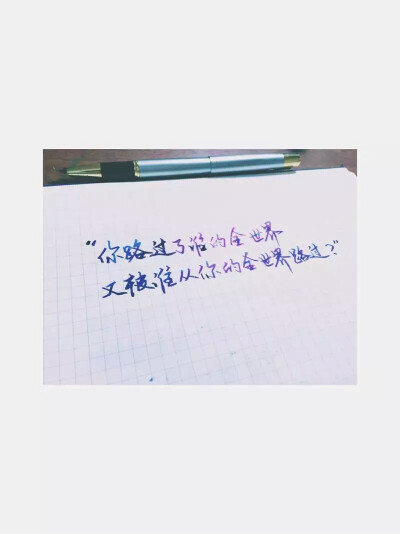 “你路过了谁的全世界
又被谁从你的全世界路过?”